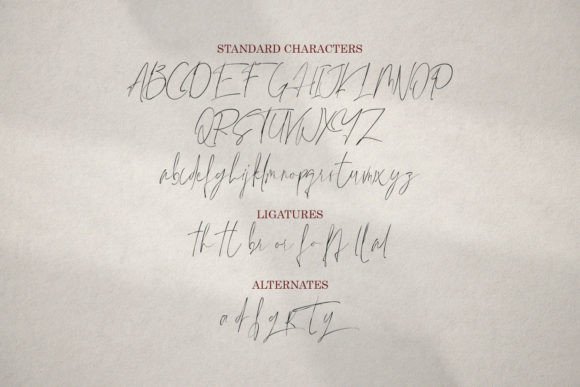 STANDARD CHARACTERS
ABCDEFGHIJKLMNOP
QRSTUVWXYZ
abcdefghijklmnopqrstuvwxyz
LIGATURES
th tt br or fo
ALTERNATES
a d f g R t y